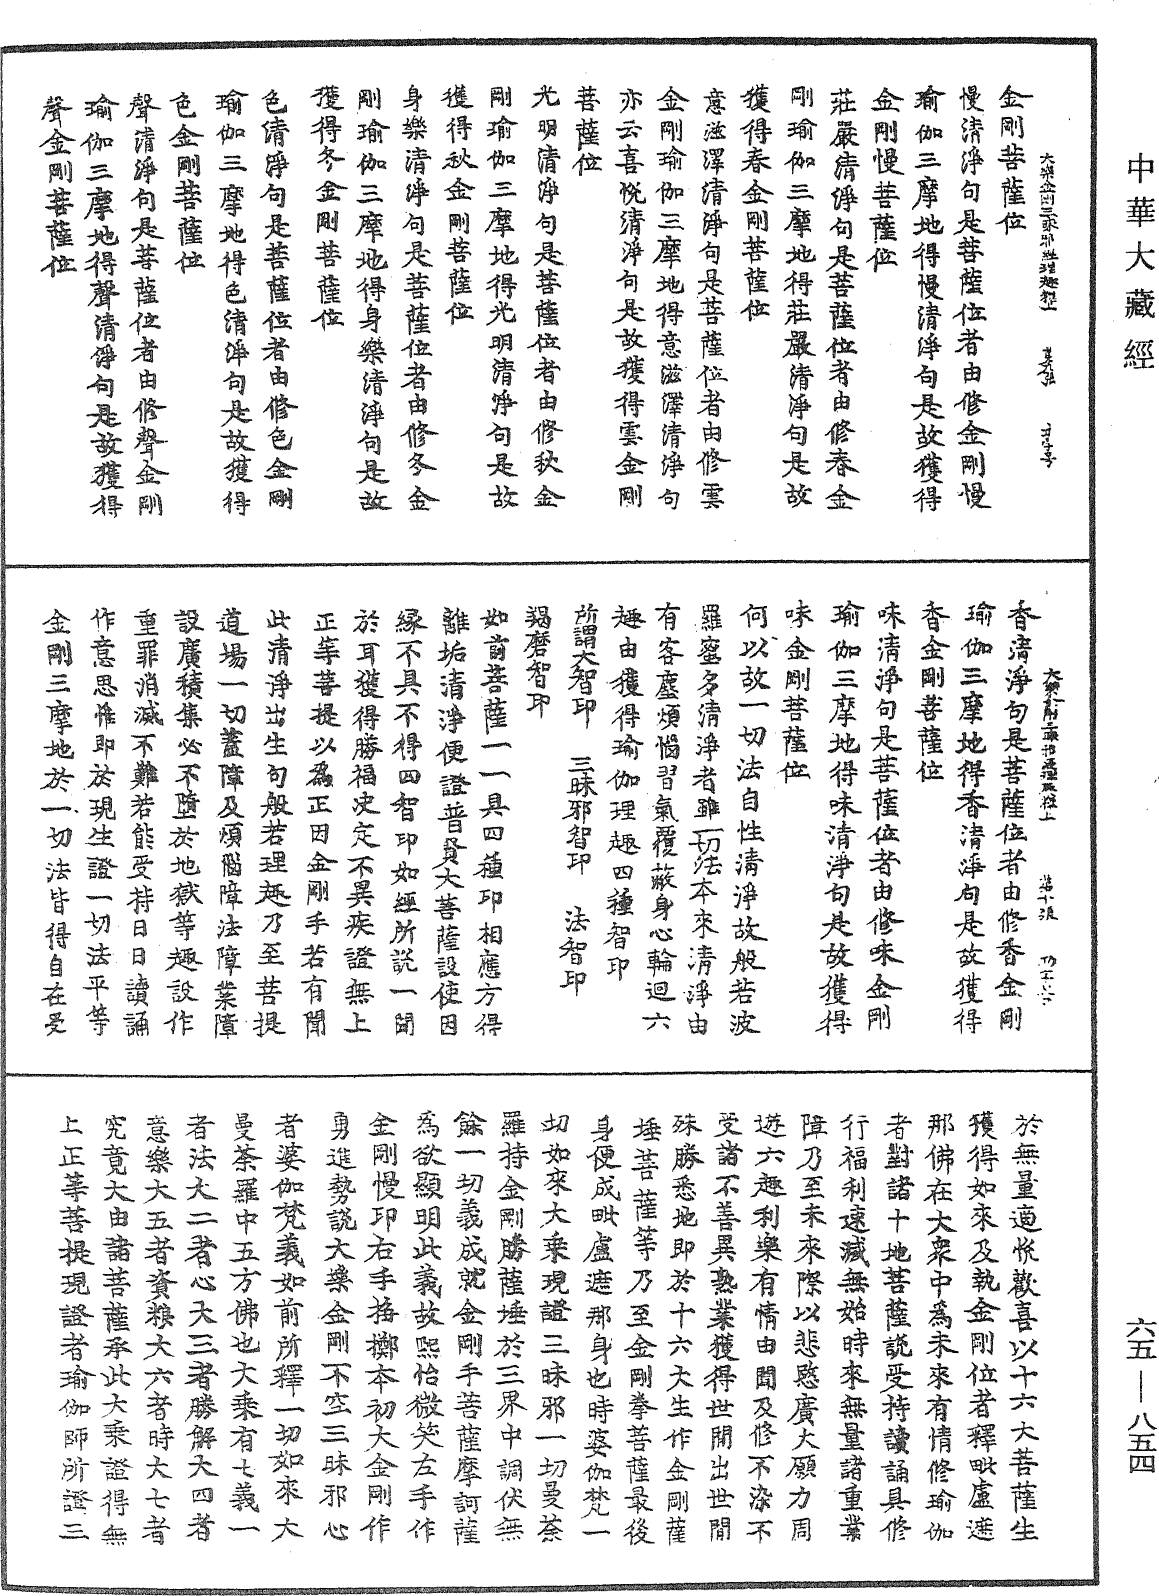 中華大藏經
金剛菩薩位
慢清淨句是菩薩位者由修金剛慢
瑜伽三摩地得慢清淨句是故獲得
金剛慢菩薩位
莊嚴清淨句是菩薩位者由修春金
剛瑜伽三摩地得莊嚴清淨句是故
獲得春金剛菩薩位
意滋澤清淨句是菩薩位者由修雲
金剛瑜伽三摩地得意滋澤清淨句
亦云喜悅清淨句是故獲得雲金剛
菩薩位
光明清淨句是菩薩位者由修秋金
剛瑜伽三摩地得光明清淨句是故
獲得秋金剛菩薩位
身樂清淨句是菩薩位者由修冬金
剛瑜伽三摩地得身樂清淨句是故
獲得冬金剛菩薩位
色清淨句是菩薩位者由修色金剛
瑜伽三摩地得色清淨句是故獲得
色金剛菩薩位
聲清淨句是菩薩位者由修聲金剛
瑜伽三摩地得聲清淨句是故獲得
聲金剛菩薩位
香清淨句是菩薩位者由修香金剛
瑜伽三摩地得香清淨句是故獲得
香金剛菩薩位
味清淨句是菩薩位者由修味金剛
瑜伽三摩地得味清淨句是故獲得
味金剛菩薩位
何以故一切法自性清淨故般若波
羅蜜多清淨者雖一切法本來清淨由
有客塵煩惱習氣覆蔽身心輪迴六
趣由獲得瑜伽理趣四種智印
所謂大智印 三昧邪智印 法智印
羯磨智印
如前菩薩一一具四種印相應方得
離垢清淨便證普賢大菩薩設使因
緣不具不得四智印如經所說一聞
於耳獲得勝福決定不異疾證無上
正等菩提以為正因金剛手若有聞
此清淨出生句般若理趣乃至菩提
道場一切蓋障及煩惱障法障業障
設廣積集必不墮於地獄等趣設作
重罪消滅不難若能受持日日讀誦
作意思惟即於現生證一切法平等
金剛三摩地於一切法皆得自在受
於無量適悅歡喜以十六大菩薩生
獲得如來及執金剛位者釋毗盧遮
那佛在大眾中為未來有情修瑜伽
者對諸十地菩薩說受持讀誦具修
行福利速滅無始時來無量諸重業
障乃至未來際以悲愍廣大願力周
遊六趣利樂有情由聞及修不染不
受諸不善異熟業獲得世間出世間
殊勝悉地即於十六大生作金剛薩
埵菩薩等乃至金剛拳菩薩最後
身便成毗盧遮那身也時婆伽梵一
切如來大乘現證三昧邪一切曼荼
羅持金剛勝薩埵於三界中調伏無
餘一切義成就金剛手菩薩摩訶薩
為欲顯明此義故熙怡微笑左手作
金剛慢印右手抽擲本初大金剛作
勇進勢說大樂金剛不空三昧邪心
者婆伽梵義如前所釋一切如來大
曼荼羅中五方佛也大乘有七義一
者法大二者心大三者勝解大四者
意樂大五者資糧大六者時大七者
究竟大由諸菩薩承此大乘證得無
上正等菩提現證者瑜伽師所證三
六五—八五四